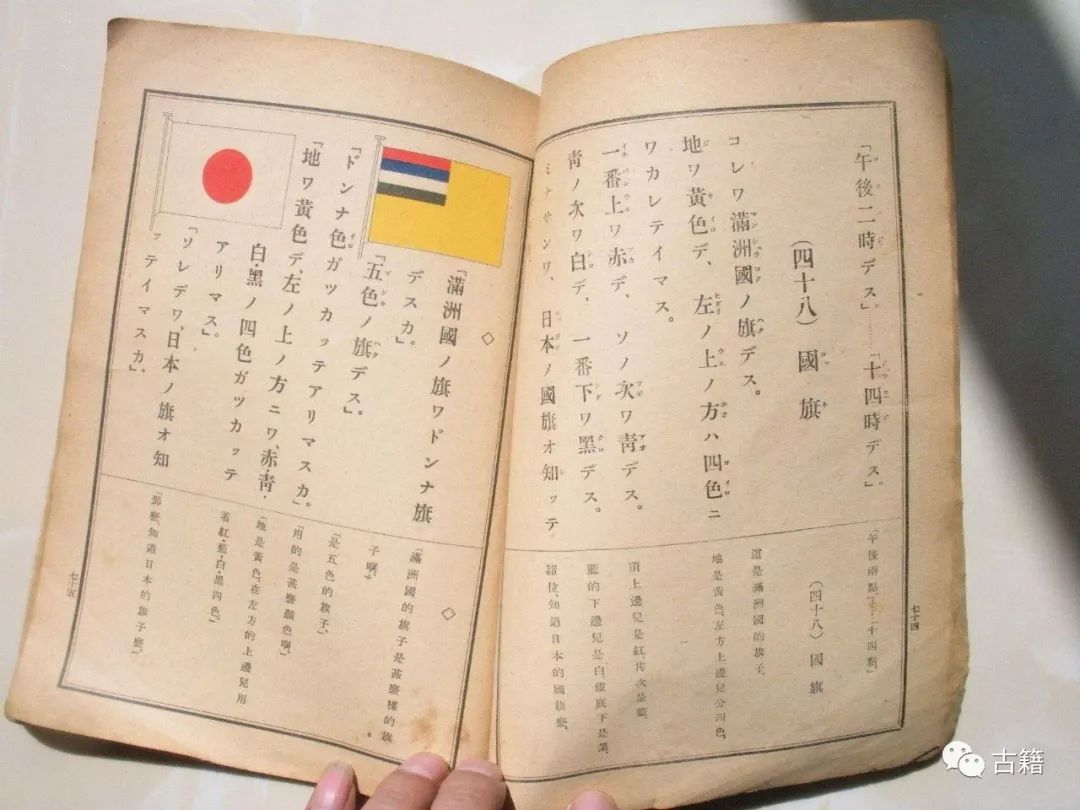 「午後二時デス」……「十四時デス」。
(四十八) 國旗
コレワ滿洲國ノ旗デス。
地ワ黃色デ、左ノ上ノ方ハ四色ニ
ワカレテイマス。
一番上ワ赤デ、ソノ次ワ靑デス。
靑ノ次ワ白デ、一番下ワ黑デス。
ミナサンワ、日本ノ國旗オ知ッテ
「午後兩點」……「十四點」
(四十八) 國旗
這是滿洲國的旗子、
地是黃色、左方上邊兒分四色、
頂上邊兒是紅、其次是藍、
藍的下邊兒是白、儘底下是黑、
諸位、知道日本的國旗麼、
七十四
◇
「滿洲國ノ旗ワドンナ旗
デスカ。
「五色ノ旗デス」。
「ドンナ色ガツカッテアリマスカ。」
「地ワ黃色デ、左ノ上ノ方ニワ、赤・靑・
白・黑ノ四色ガツカッテ
アリマス」。
「ソレデワ、日本ノ旗オ知
ッテイマスカ」。
◇
「滿洲國的旗子是甚麼樣的旗
子啊」
「是五色的旗子」
「用的是甚麼顏色啊」
「地是黃色、在左方的上邊兒用
着紅・藍・白・黑四色」
「那麼、知道日本的旗子麼」
七十五
古籍